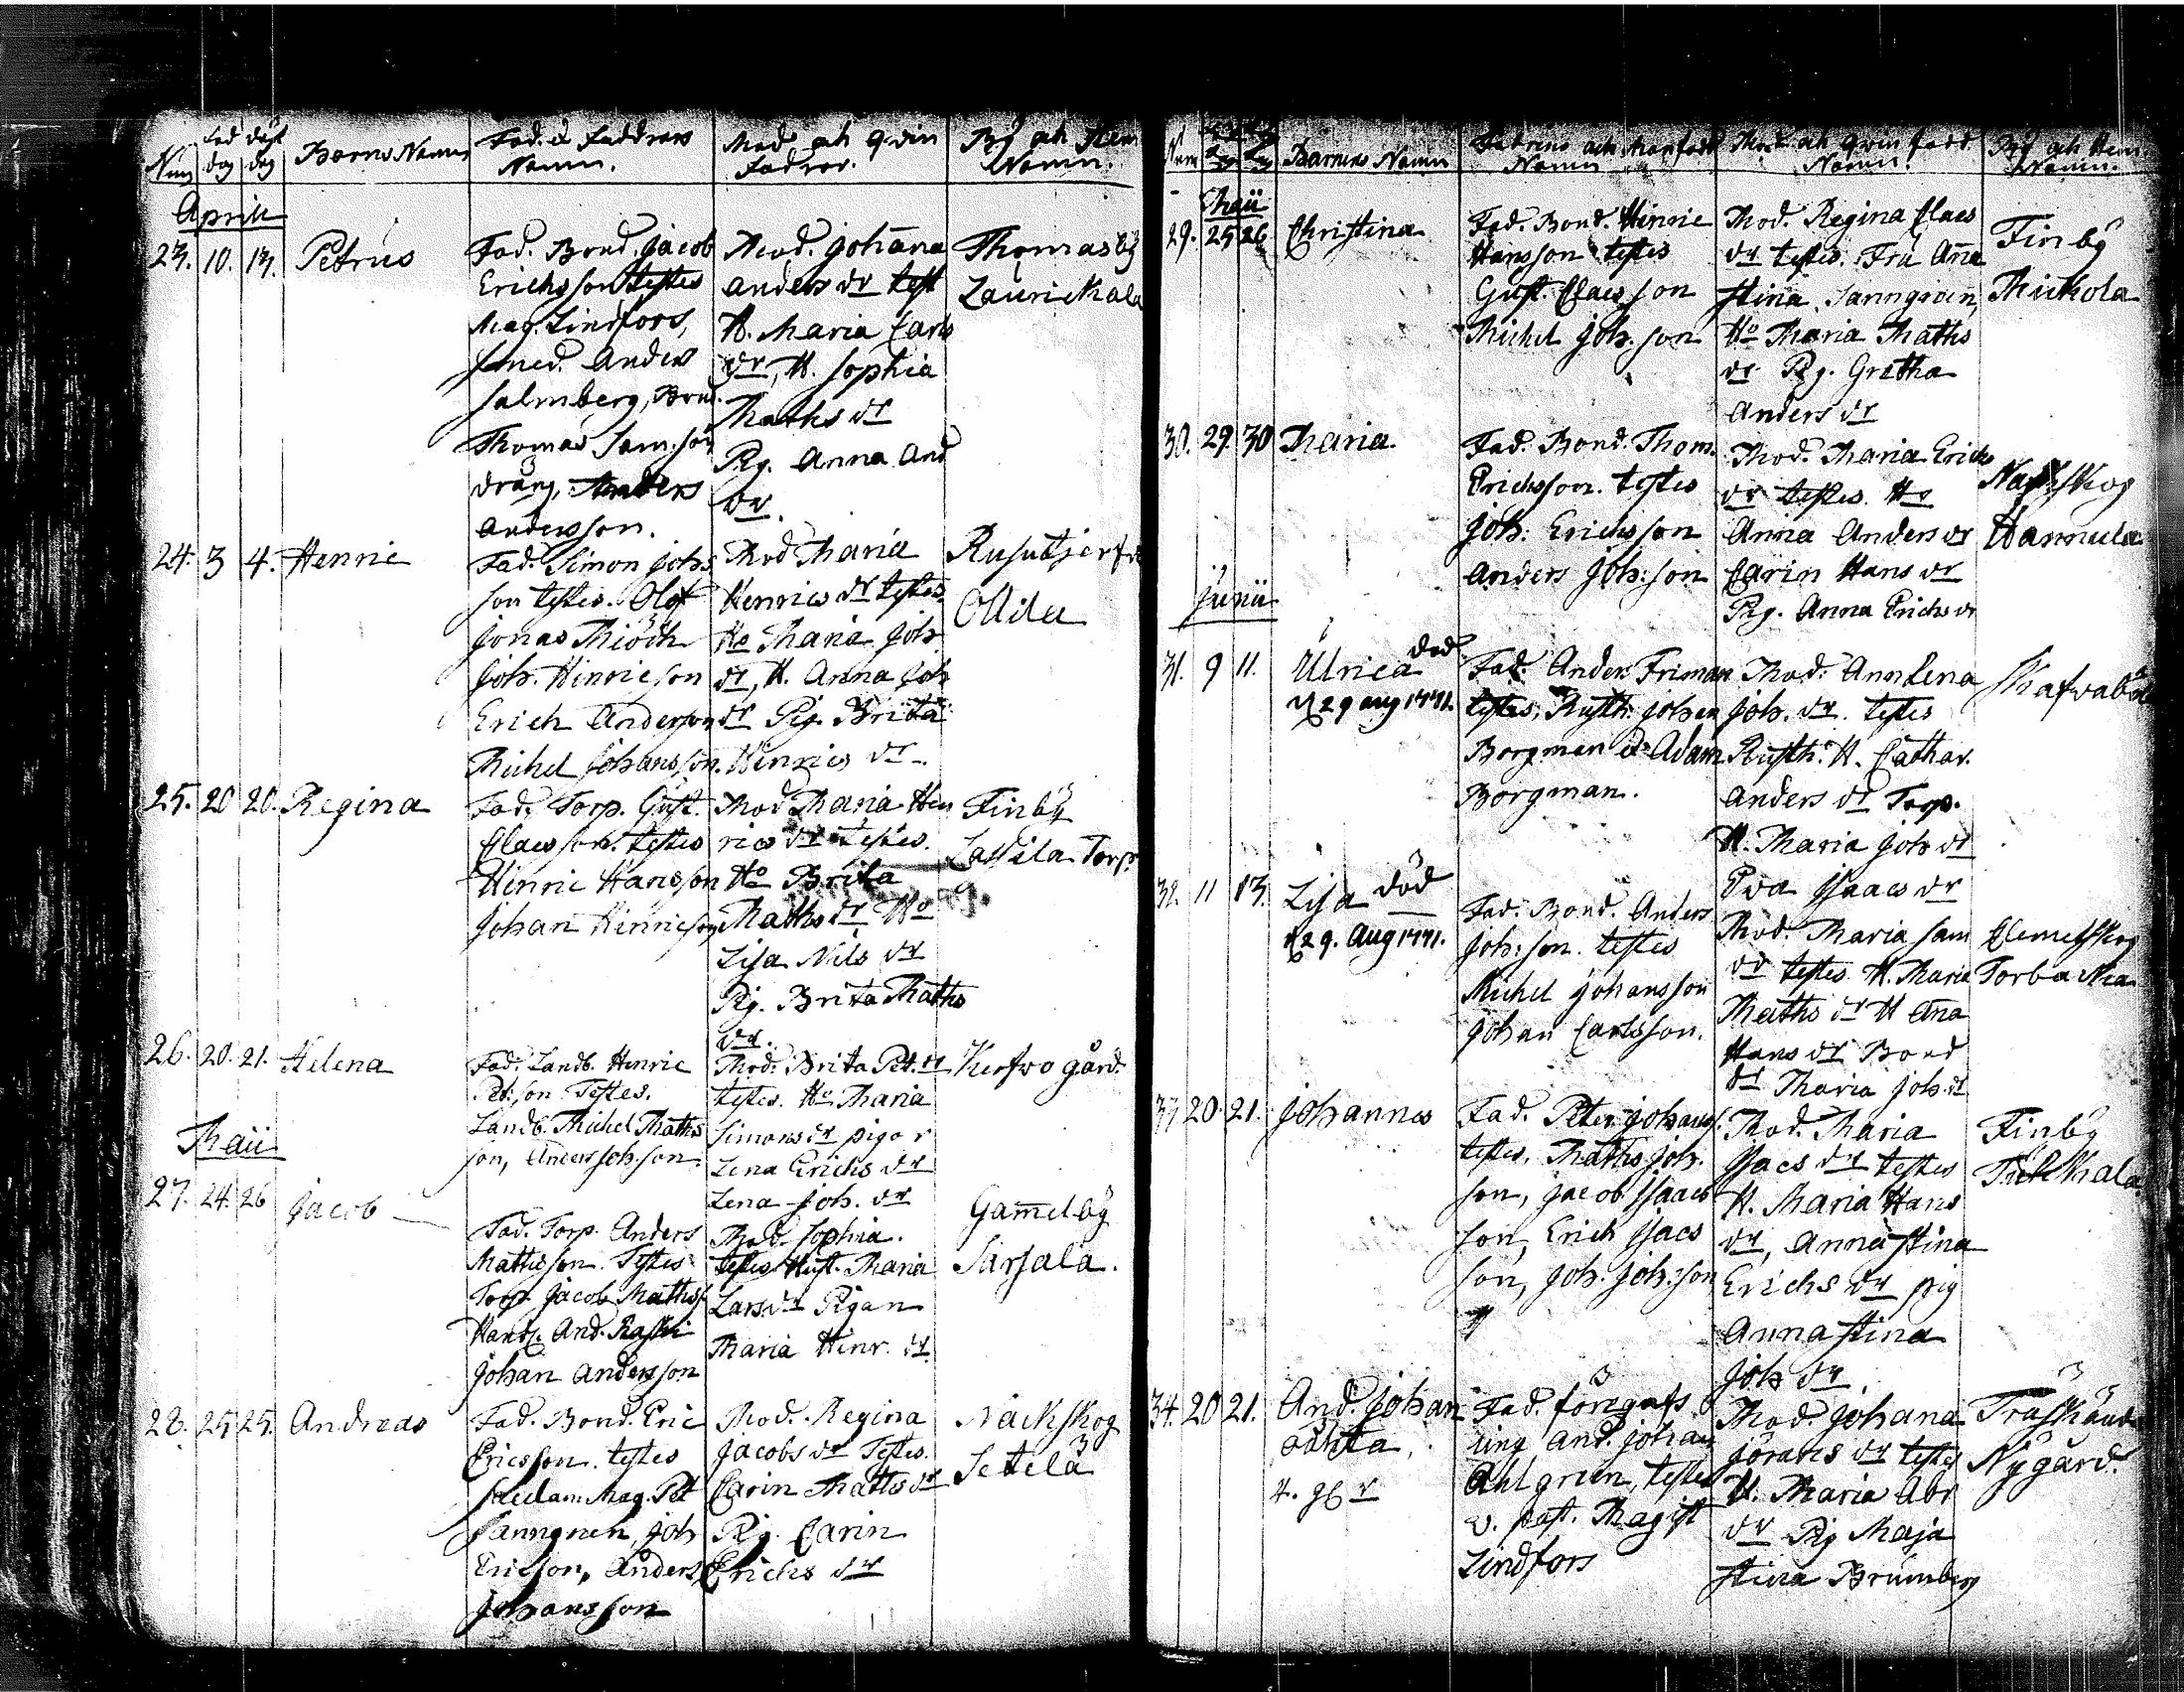 Num Föd dag Döpt dag Barns Namn Fad. & Faddrars Namn. Mod. och qvin Fadrar. By och Hem Namn.
Aprill
23. 10. 13. Petrus
Fad. Bond. Jacob
Erichsson testes
Mag. Lindfors,
smed. Anders
Salmberg, Bond.
Thomas Sam:son
dräng, Anders
Andersson.
Mod. Johana
Anders dr test
H. Maria Carls
dr, H. Sophia
Maths dr
Pig. Anna And
dr.
Thomasby
Laurickala
24. 3 4. Henric
Fad. Simon Johs
son testes. Olof
Jonas Miödh
Joh. Hinricson
Erich Anderson
Michel Johansson.
Mod Maria
Henrics dr testes.
Ho Maria Joh
dr, H. Anna Joh
dr Pig. Brita
Hinrics dr.
Rusutjerfvi
Ollila
25. 20 20. Regina
Fad. Torp. Gust.
Claes son. testes
Hinric Hansson
Johan Hinricson
Mod Maria Hen
rics dr testes.
Ho Brita
Maths dr Ho
Lisa Nils dr
Pig. Brita Maths
dr.
Finby
Lassila Torp.
26. 20. 21. Helena
Fad. Landb. Henric
Pet:son Testes.
Landb. Michel Maths
son, Anders Joh.son.
Mod. Brita Pet. dr
testes. Ho Maria
Simons dr pigor
Lena Erichs dr
Lena Joh. dr
Kerfvo gård.
Maii
27. 24. 26 Jacob
Fad. Torp. Anders
Mattsson. Testes
Torp. Jacob Mathss.
And.
Johan Andersson
Mod. Sophia.
testes Hust. Maria
Lars dr Pigan
Maria Hinr. dr.
Gam̅elby
Sarsala.
28. 25 25. Andreas
Fad. Bond. Eric
Ericsson. testes
Mag. Pet
Sanngren, Joh
Ericsson, Anders
Johansson
Mod. Regina
Jacobs dr Testes.
Carin Matts dr
Pig. Carin
Erichs dr
Näckskog
Setelä
Num Barnens Namn Fadrens och Manfadd Namn Mod. och qvin fadd. Namn. By och Hem. Namn.
Maii
29. 25 26 Christina
Fad. Bond. Hinric
Hansson testes
Gust. Claes son
Michel Joh. son
Mod. Regina Claes
dr testes. Fru An̅a
Stina Sanngren,
Ho Maria Maths
dr Pig. Gretha
Anders dr
Finby
Mickola
30. 29. 30 Maria
Fad. Bond. Thom.
Erichsson. testes
Joh. Erichsson
Anders Joh:son
Mod. Maria Erichs
dr testes. Ho
Anna Anders dr
Carin Hans dr
Pig. Anna Erichs dr
Näckskog
Hannula
Junii
31. 9 11. Ulrica död
29 aug 1771.
Fad. Anders Friman
testes, Rusth. Johan
Borgman et Adam
Borgman.
Mod. Ann Lena
Joh. dr. testes
Rusth. H. Cathar.
Anders dr Torp.
H. Maria Joh dr
Eva Isaacs dr
Skafvaböl
32. 11 13. Lisa död
29. Aug 1771.
Fad. Bond. Anders
Joh:son. testes
Michel Johansson
Johan Carlsson.
Mod. Maria Sam
dr testes. H. Maria
Maths dr H Ana
Hans dr Bond
dr Maria Joh. dr
Clemetskog
Torbackia
33 20. 21. Johannes
Fad. Peter Johanss.
testes, Maths Joh.
son, Jacob Isaacs
son, Erich Isacs
son, Joh. Joh:son
Mod. Maria
Isacs dr testes
H. Maria Hans
dr, Anna Stina
Erichs dr pig
Anna Stina
Joh dr
Finby
34. 20 21. And. Johan
oächta,
Fad. förgafs
ling And. Johan
Ahlgren, testes
v. past. Magist
Lindfors
Mod. Johana
Jörans dr testes
H. Maria Abr
dr Pig Maja
Stina Brumberg
Träskände
Nygård.